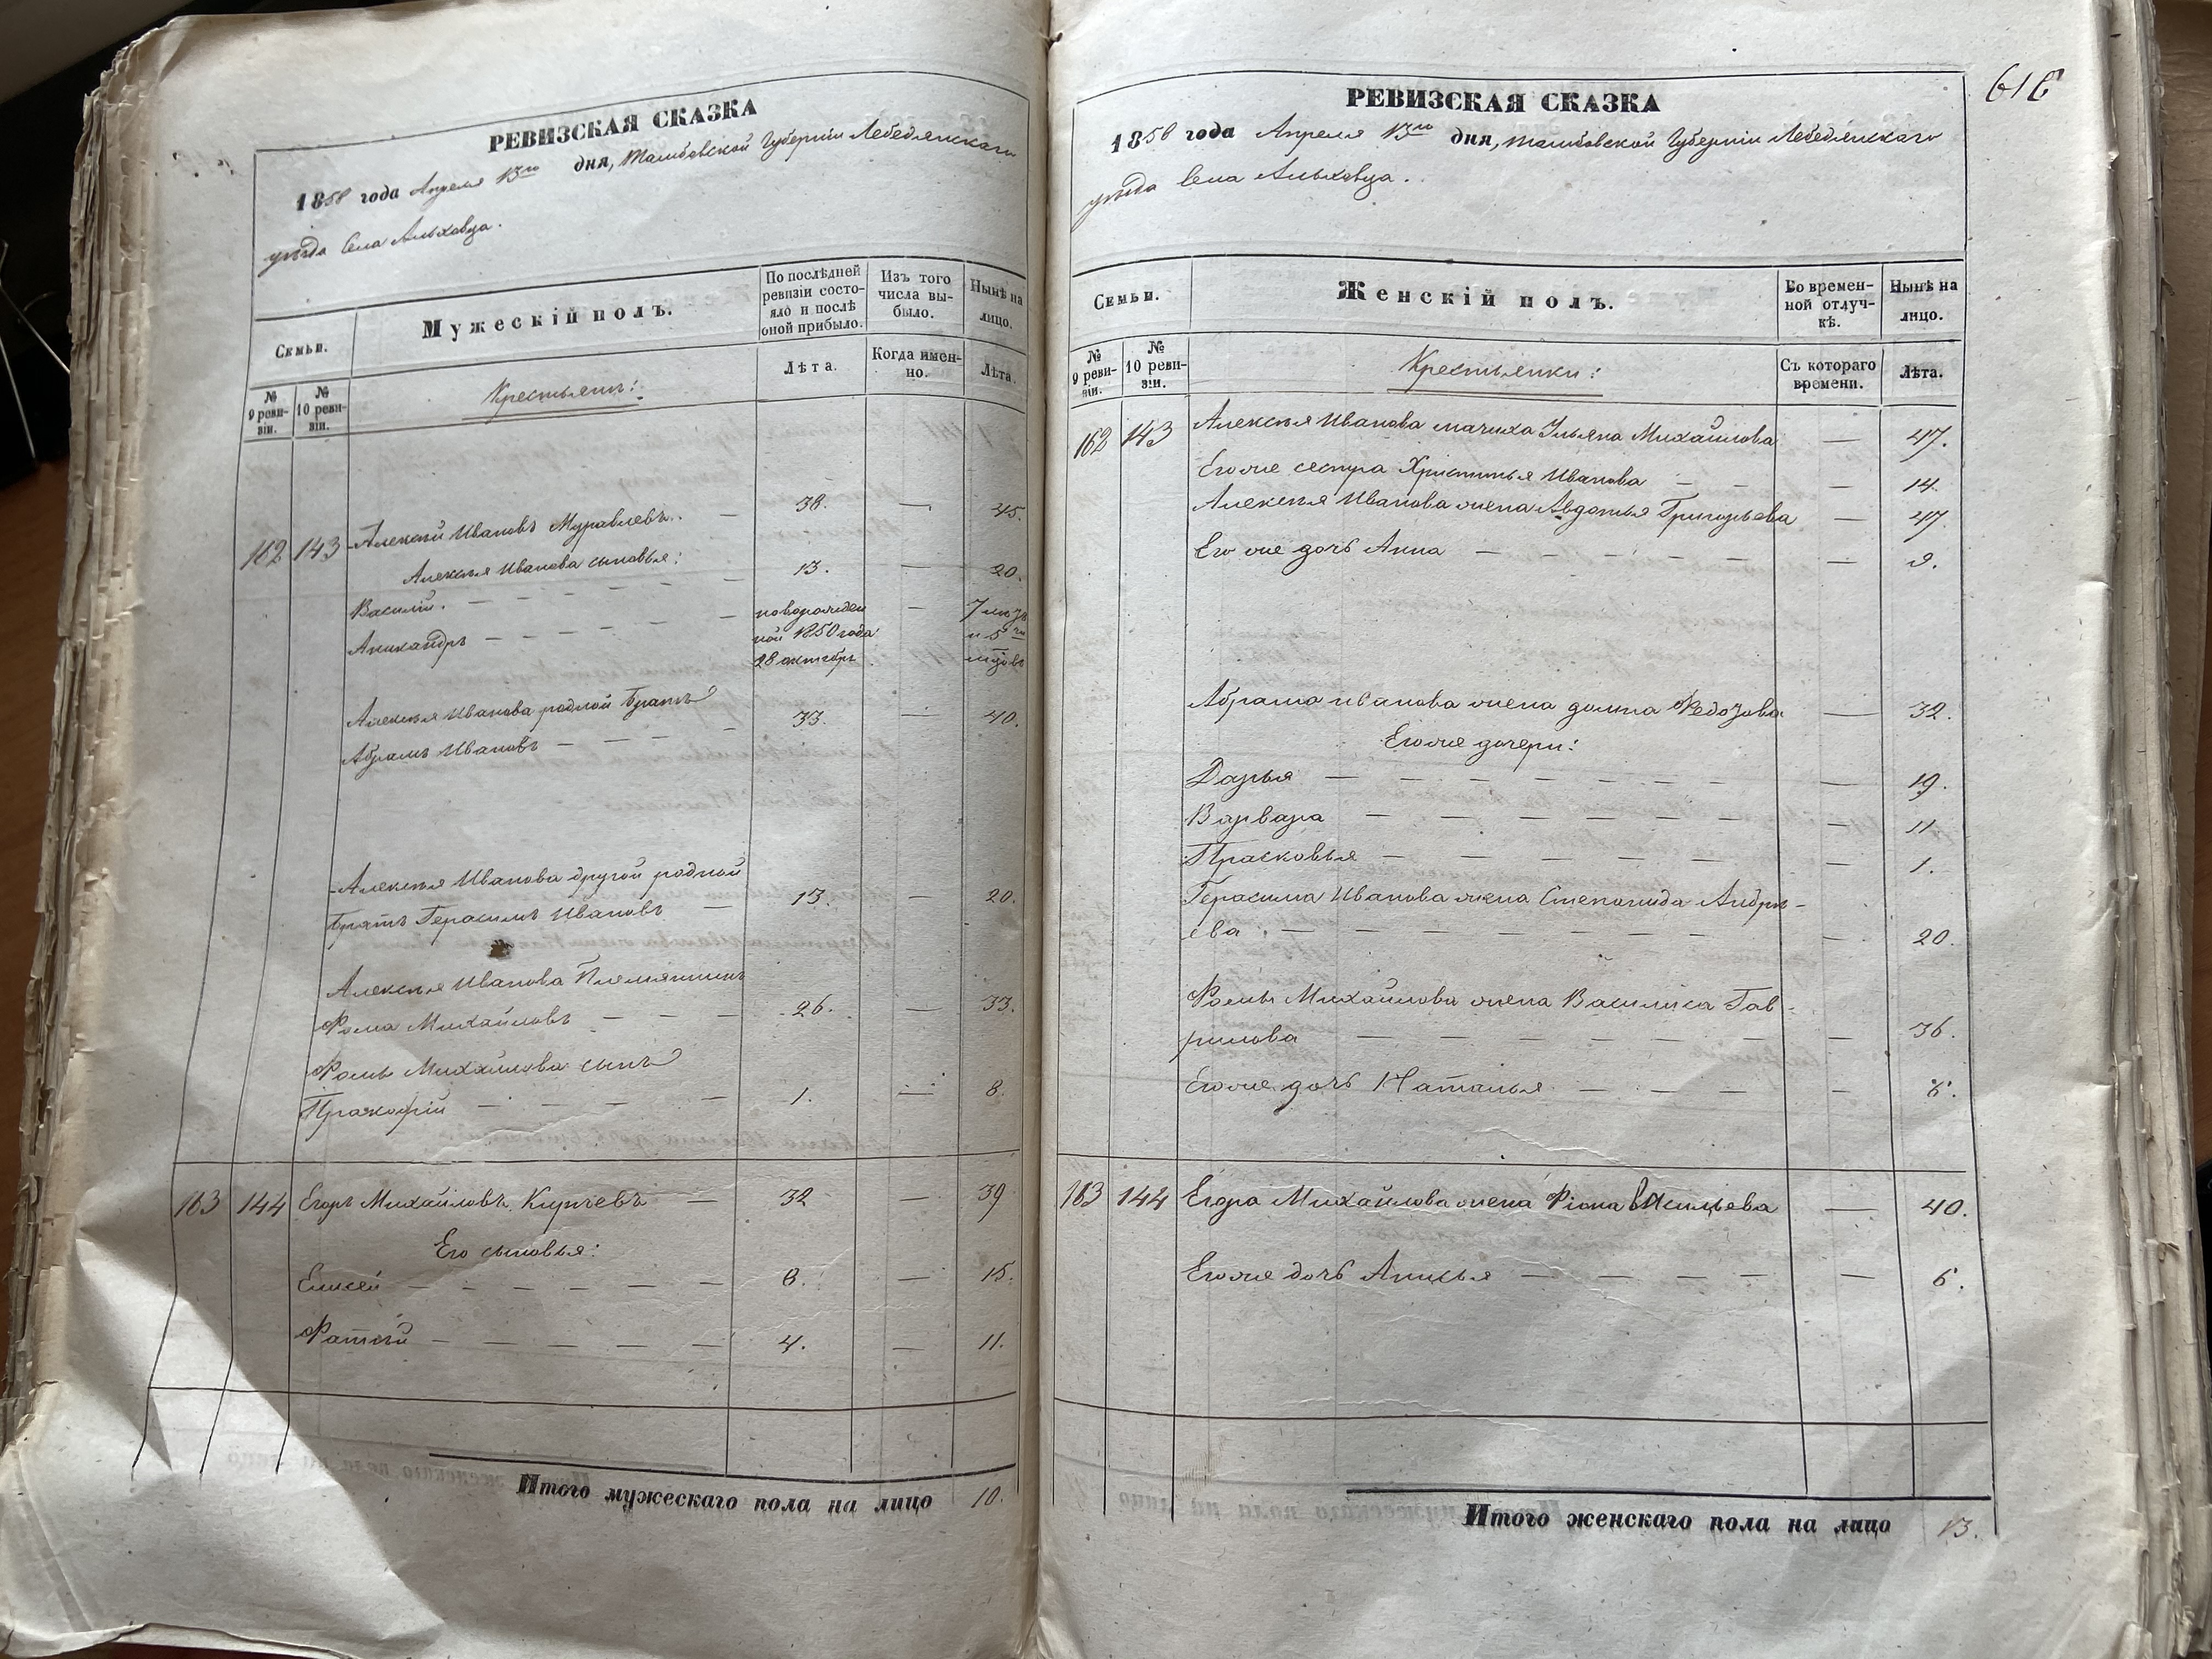 РЕВИЗСКАЯ СКАЗКА
1858 года Апреля 13го дня, Тамбовской Губернiи Лебедянскаго
уѣзда Села Альховца.
Семьи.
Мужескiй полъ.
По послѣдней ревизiи состояло и послѣ оной прибыло.
Изъ того числа выбыло.
Нынѣ на лицо.
№ 9 ревизiи.
№ 10 ревизiи.
Крестьянъ:
Лѣта.
Когда именно.
Лѣта.
162 143 Алексѣй Ивановъ Муравлевъ. — 38. — 45.
Алексѣя Иванова сыновья:
Василiй. — — — — — 13. — 20.
Аникандръ — — — — — новорожден — 7 лѣтъ
ной 1850 года и 5ти
28 октябр. мѣсяцовъ
Алексѣя Иванова родной братъ
Абрамъ Ивановъ — — — — 33. — 40.
Алексѣя Иванова другой родной
братъ Герасимъ Ивановъ — 13. — 20.
Алексѣя Иванова Племянникъ
Фома Михайловъ — — — 26. — 33.
Фомы Михайлова сынъ
Пракофiй — — — — 1. — 8.
163 144 Егоръ Михайловъ Кирѣевъ — 32 — 39
Его сыновья:
Елисей — — — — — 8. — 15.
Фатѣй — — — — — 4. — 11.
Итого мужескаго пола на лицо 10.
616
РЕВИЗСКАЯ СКАЗКА
1858 года Апреля 13го дня, Тамбовской Губернiи Лебедянскаго
уѣзда Села Альховца.
Семьи.
Женскiй полъ.
Во временной отлучкѣ.
Нынѣ на лицо.
№ 9 ревизiи.
№ 10 ревизiи.
Крестьянки:
Съ котораго времени.
Лѣта.
162 143 Алексѣя Иванова мачиха Ульяна Михайлова — 47.
Его же сестра Христинья Иванова — — — 14.
Алексѣя Иванова жена Авдотья Григорьева — 47
Его же дочь Анна — — — — — — — 9.
Абрама иванова жена домна Федозова — 32.
Его же дочери:
Дарья — — — — — — — 19.
Варвара — — — — — — — 11
Прасковья — — — — — — 1.
Герасима Иванова жена Степонида Андрѣ-
ева — — — — — — — — 20.
Фомы Михайлова жена Василиса Гав-
рилова — — — — — — — 36.
Его же дочь Наталья — — — — 6.
163 144 Егора Михайлова жена Фiона Васильева — 40.
Его же дочь Анисья — — — — — 6.
Итого женскаго пола на лицо 13.